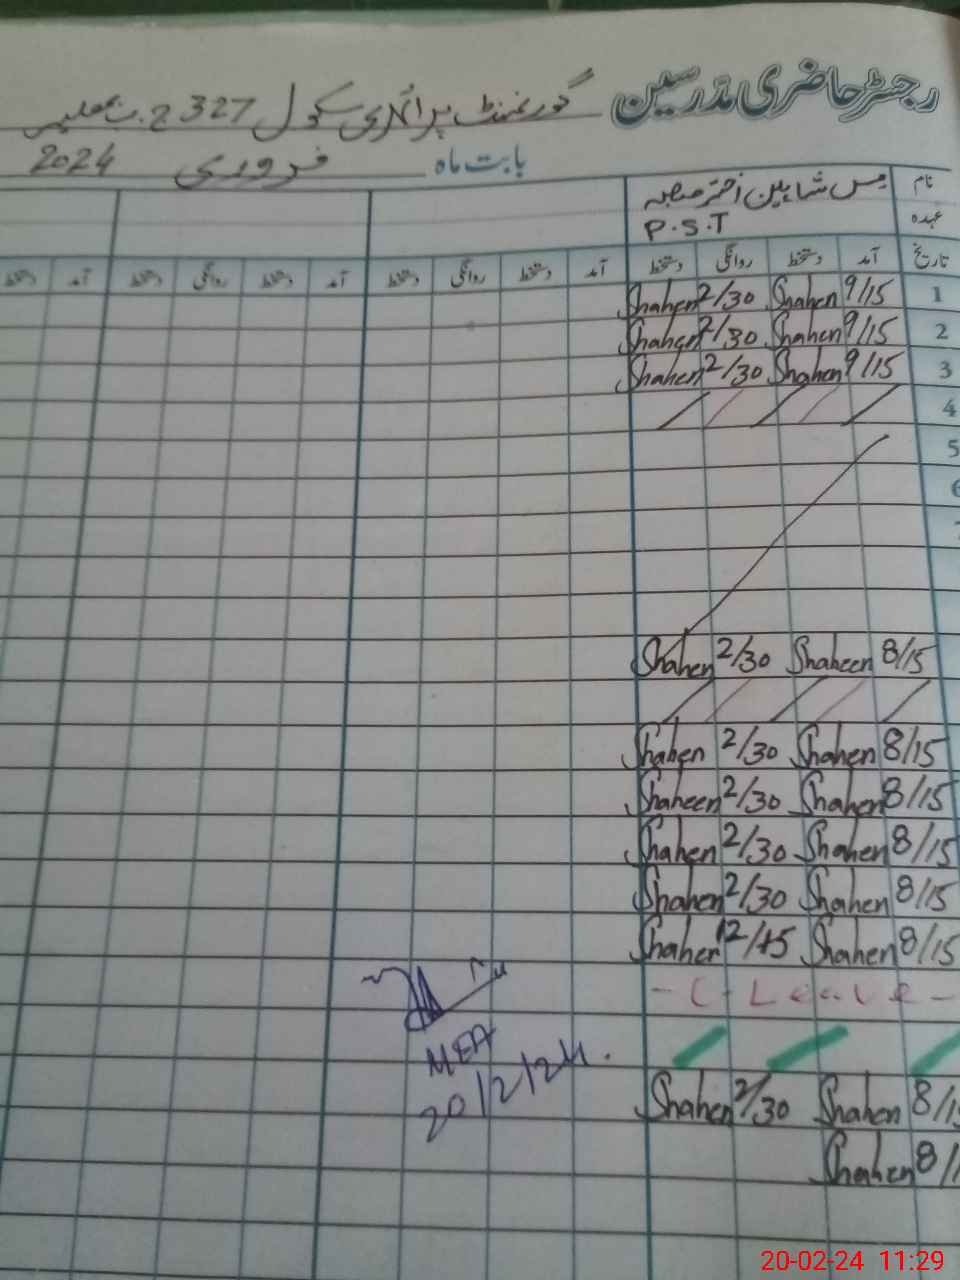 رجسٹر حاضری مدرسین گورنمنٹ پرائمری سکول 327 ج.ب
بابت ماہ فروری 2024
نام مس شاہین اختر صاحبہ
عہدہ P.S.T
تاریخ آمد دستخط روانگی دستخط آمد دستخط روانگی دستخط آمد دستخط روانگی دستخط آمد دستخط
1 9/15 Shahen 2/30 Shahen
2 9/15 Shahen 2/30 Shahen
3 9/15 Shahen 2/30 Shahen
4
5
6
7
8/15 Shaheen 2/30 Shahen
8/15 Shahen 2/30 Shahen
8/15 Shahen 2/30 Shaheen
8/15 Shahen 2/30 Shahen
8/15 Shahen 2/30 Shahen
8/15 Shahen 12/15 Shahen
- C - Leave -
MEA
20/2/24.
8/15 Shahen 2/30 Shahen
8/1 Shahen
20-02-24 11:29